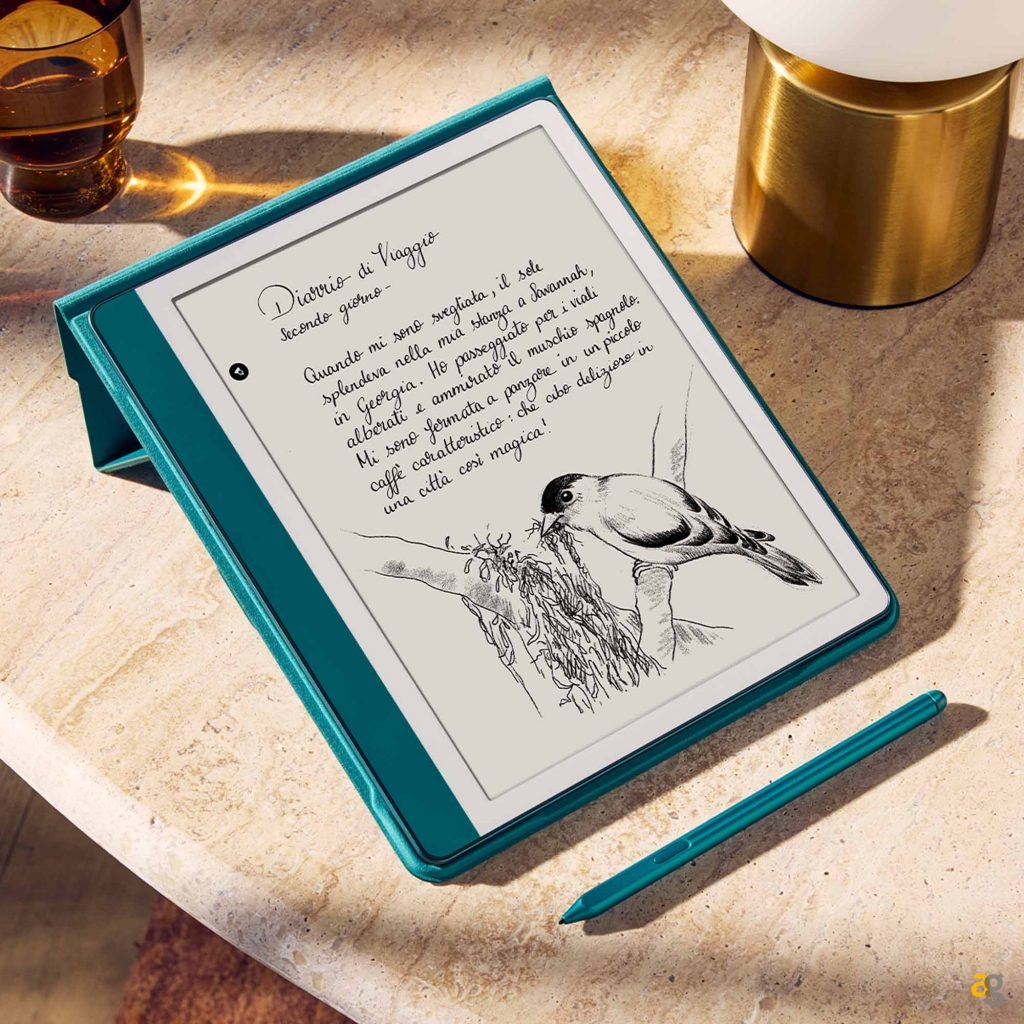 Diario di Viaggio
secondo giorno-
Quando mi sono svegliata, il sole
splendeva nella mia stanza a Savannah,
in Georgia. Ho passeggiato per i viali
alberati e ammirato il muschio spagnolo.
Mi sono fermata a panzare in un piccolo
caffè caratteristico: che cibo delizioso in
una città così magica!
ag